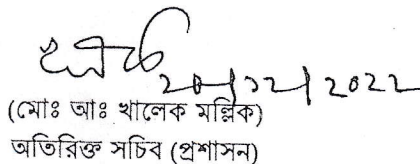 20/12/2022
(মোঃ আঃ খালেক মল্লিক)
অতিরিক্ত সচিব (প্রশাসন)